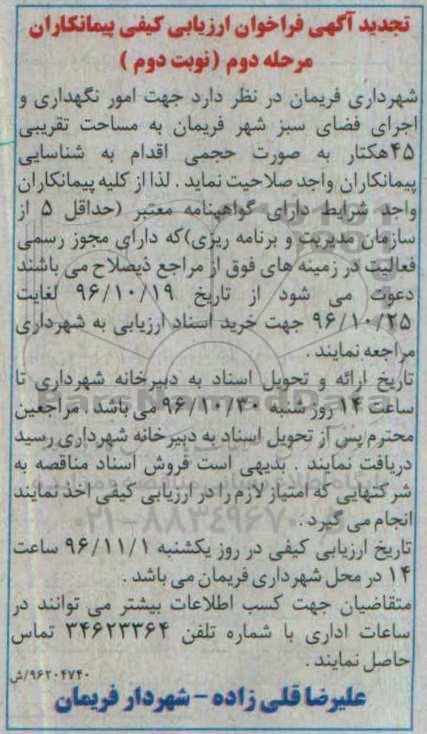 تجدید آگهی فراخوان ارزیابی کیفی پیمانکاران
مرحله دوم ( نوبت دوم )
شهرداری فریمان در نظر دارد جهت امور نگهداری و
اجرای فضای سبز شهر فریمان به مساحت تقریبی
۴۵هکتار به صورت حجمی اقدام به شناسایی
پیمانکاران واجد صلاحیت نماید . لذا از کلیه پیمانکاران
واجد شرایط دارای گواهینامه معتبر (حداقل ۵ از
سازمان مدیریت و برنامه ریزی)که دارای مجوز رسمی
فعالیت در زمینه های فوق از مراجع ذیصلاح می باشند
دعوت می شود از تاریخ ۹۶/۱۰/۱۹ لغایت
۹۶/۱۰/۲۵ جهت خرید اسناد ارزیابی به شهرداری
مراجعه نمایند .
تاریخ ارائه و تحویل اسناد به دبیرخانه شهرداری تا
ساعت ۱۴ روز شنبه ۹۶/۱۰/۳۰ می باشد . مراجعین
محترم پس از تحویل اسناد به دبیرخانه شهرداری رسید
دریافت نمایند . بدیهی است فروش اسناد مناقصه به
شرکتهایی که امتیاز لازم را در ارزیابی کیفی اخذ نمایند
انجام می گیرد .
تاریخ ارزیابی کیفی در روز یکشنبه ۹۶/۱۱/۱ ساعت
۱۴ در محل شهرداری فریمان می باشد .
متقاضیان جهت کسب اطلاعات بیشتر می توانند در
ساعات اداری با شماره تلفن ۳۴۶۲۳۳۶۴ تماس
حاصل نمایند .
۹۶۲۰۴۷۴۰/ش
علیرضا قلی زاده - شهردار فریمان
ParsNamadData
۰۲۱-۸۸۳۴۹۶۷۰